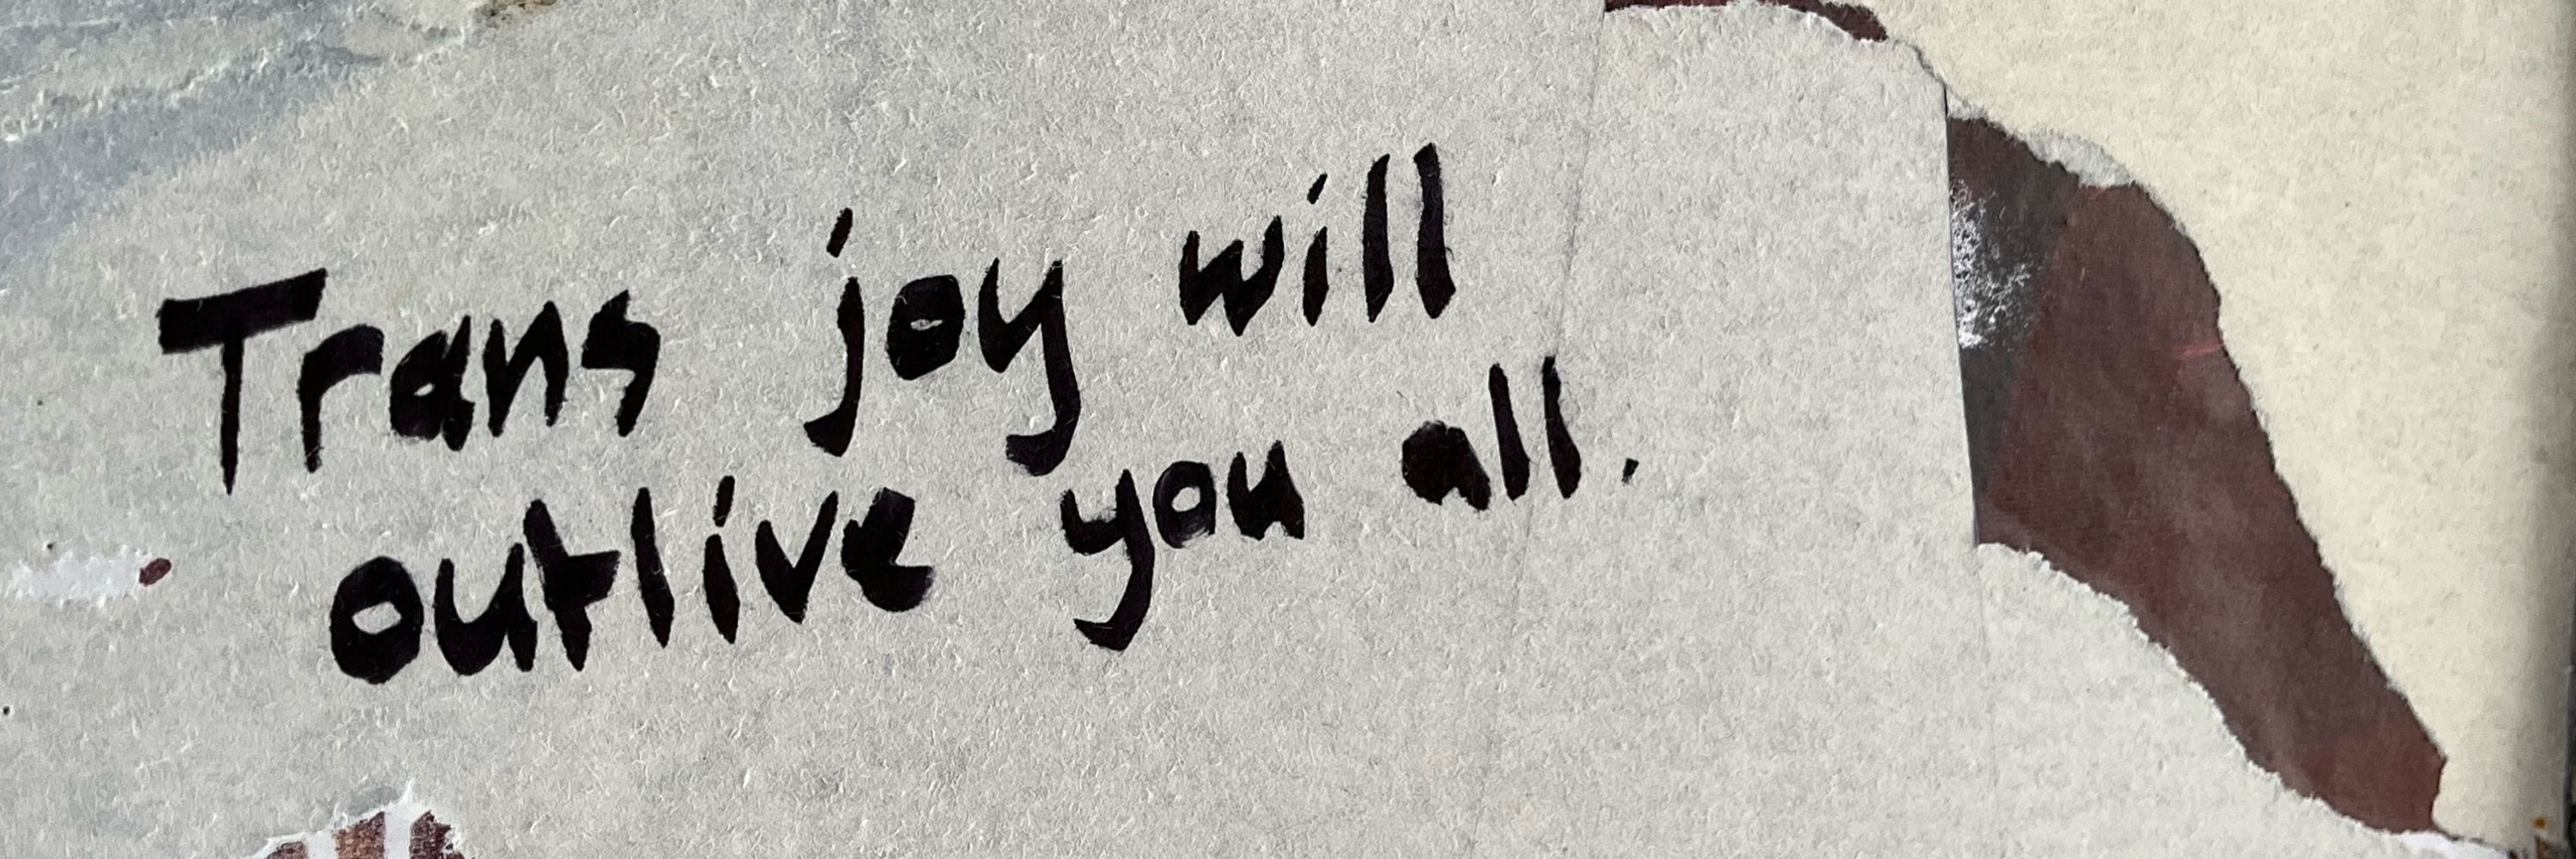 Trans joy will
outlive you all.